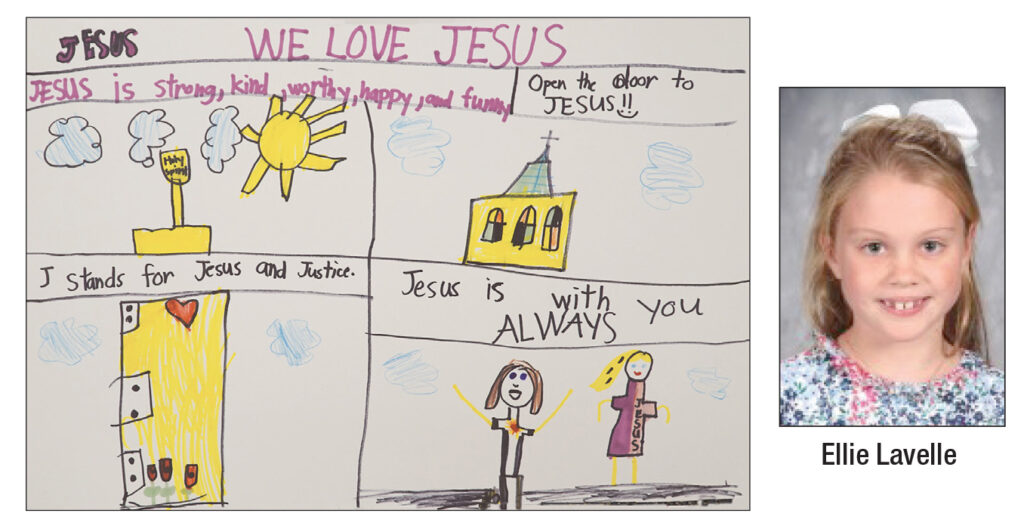 JESUS WE LOVE JESUS
JESUS is strong, kind, worthy, happy, and funny
Open the door to
JESUS!!
Holy
Spirit
J stands for Jesus and Justice.
Jesus is with you
ALWAYS
JESUS
Ellie Lavelle